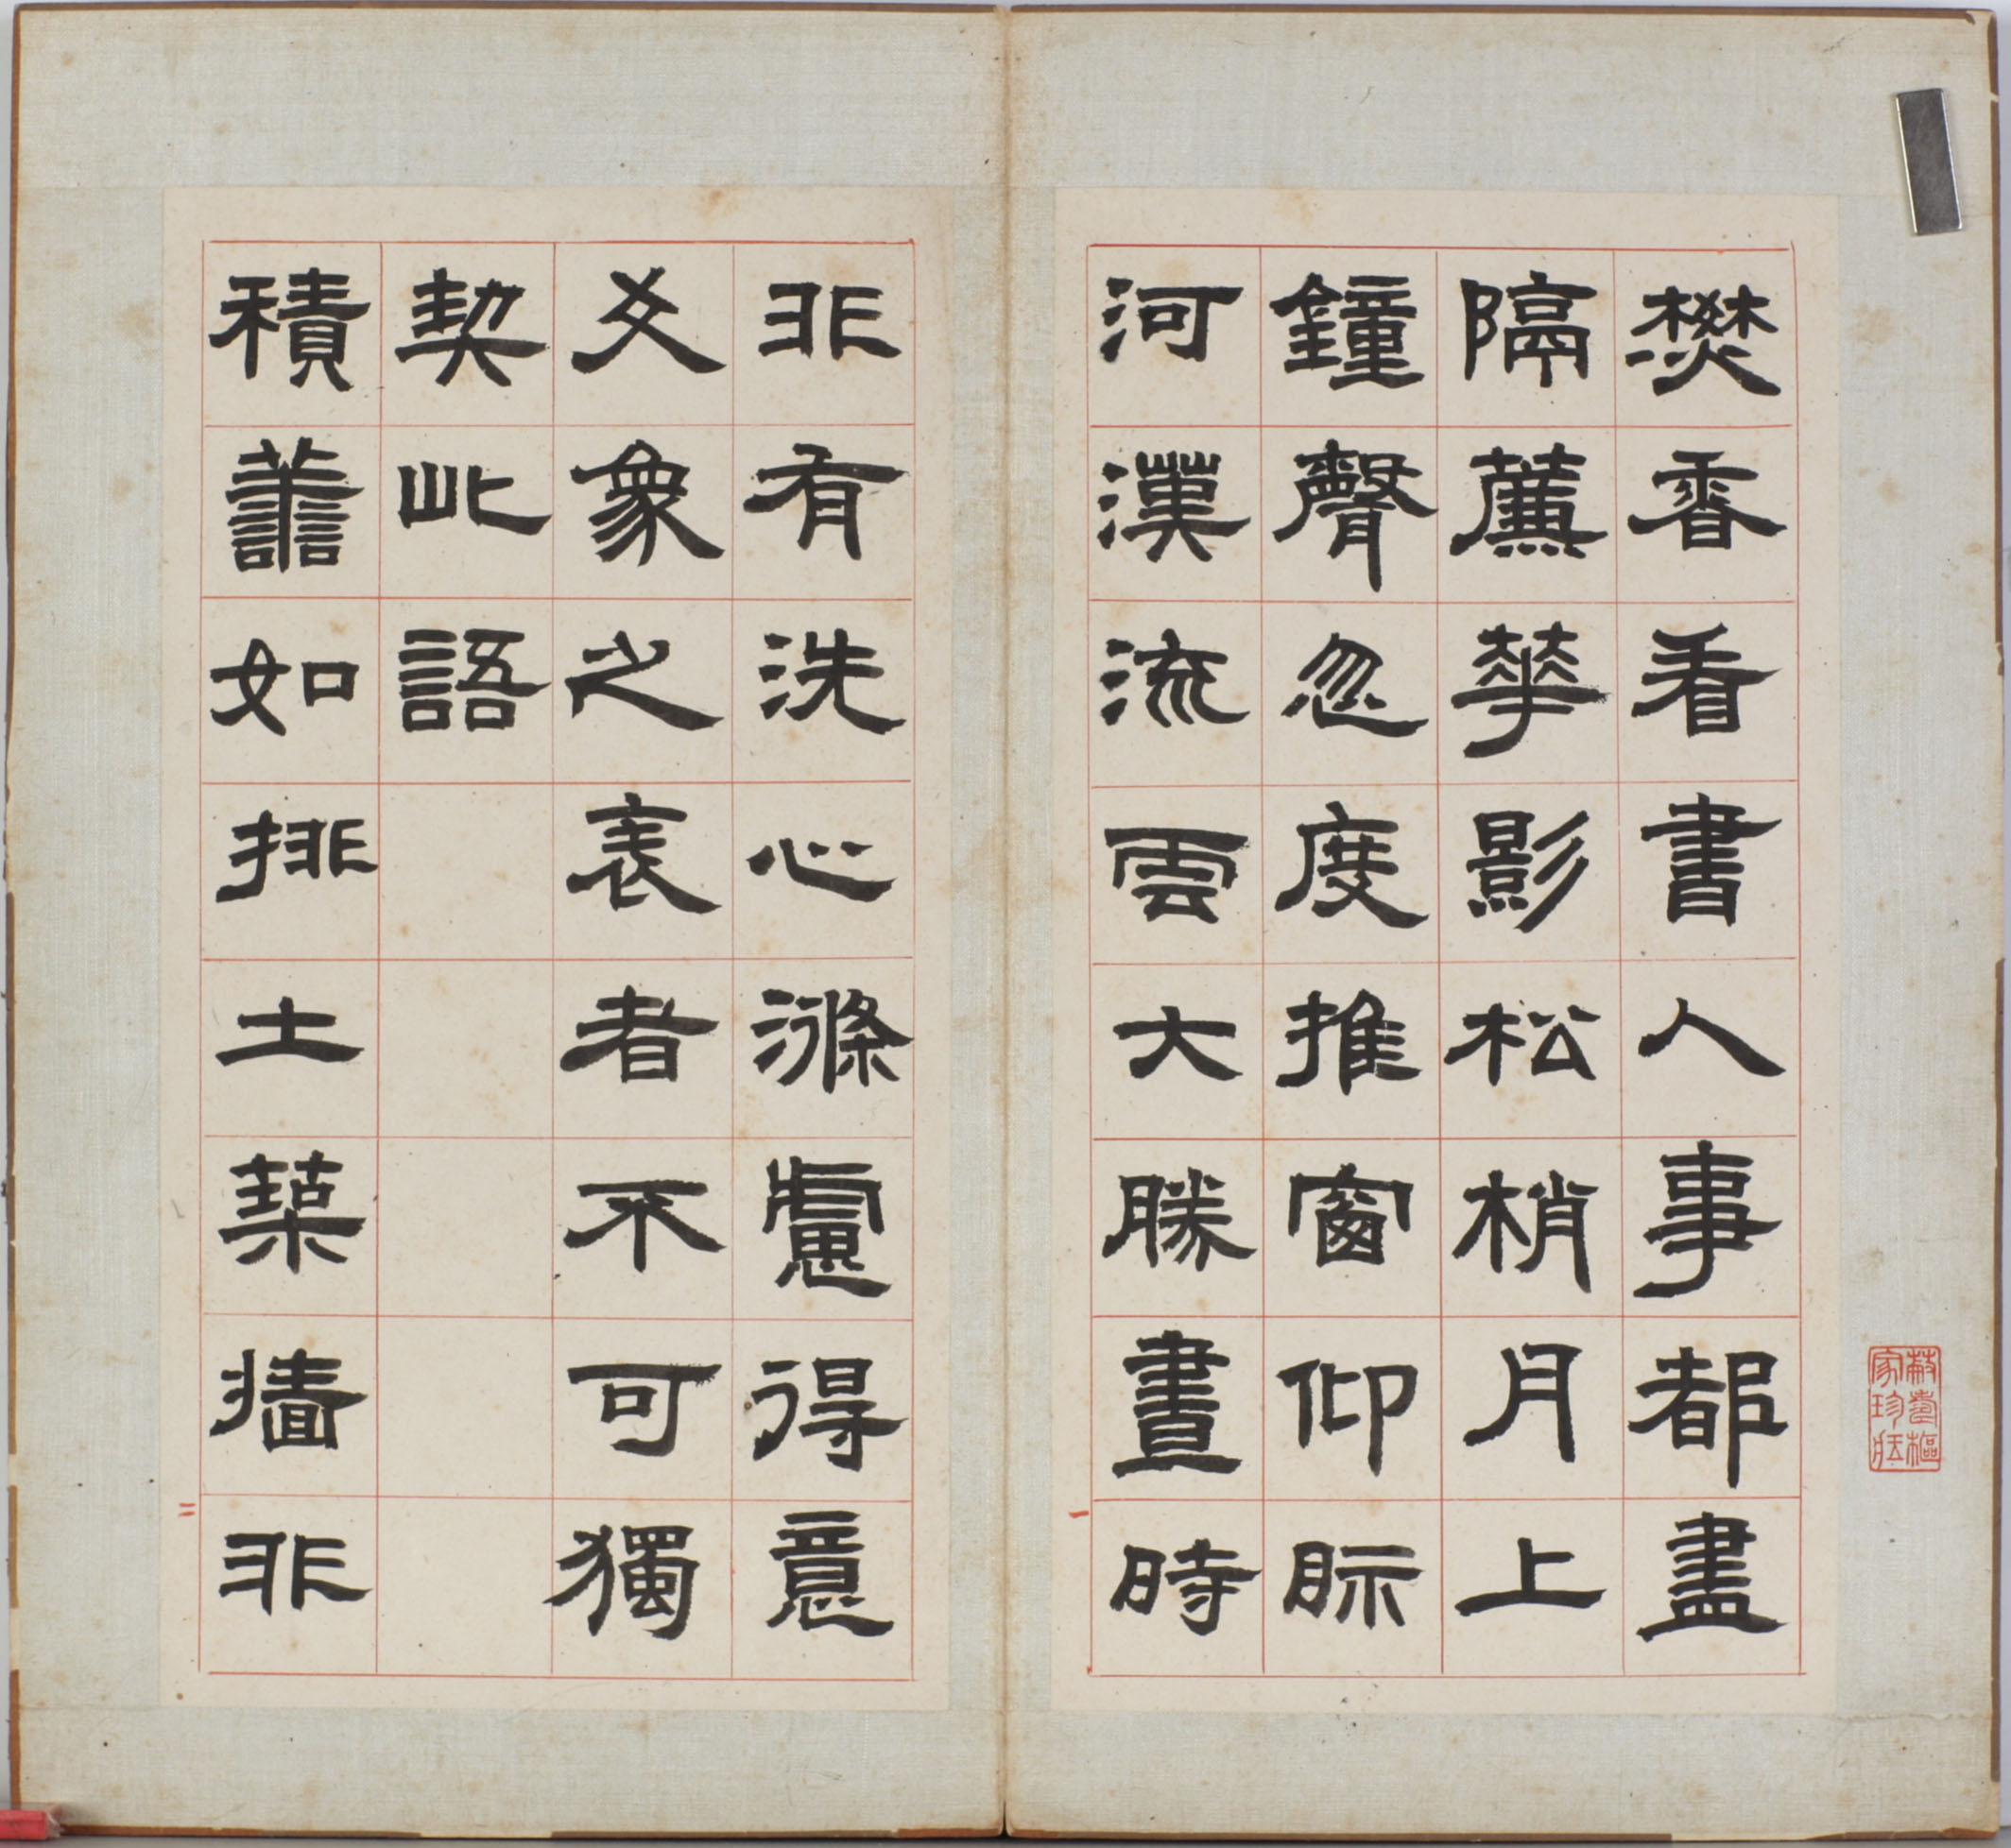 燓香看書人事都盡
隔薕華影松梢月上
鐘聲忽度推窗仰眎
河漢流雲大勝晝時
一
非有洗心滌慮得意
爻象之表者不可獨
契此語
積譱如排土築牆非
二